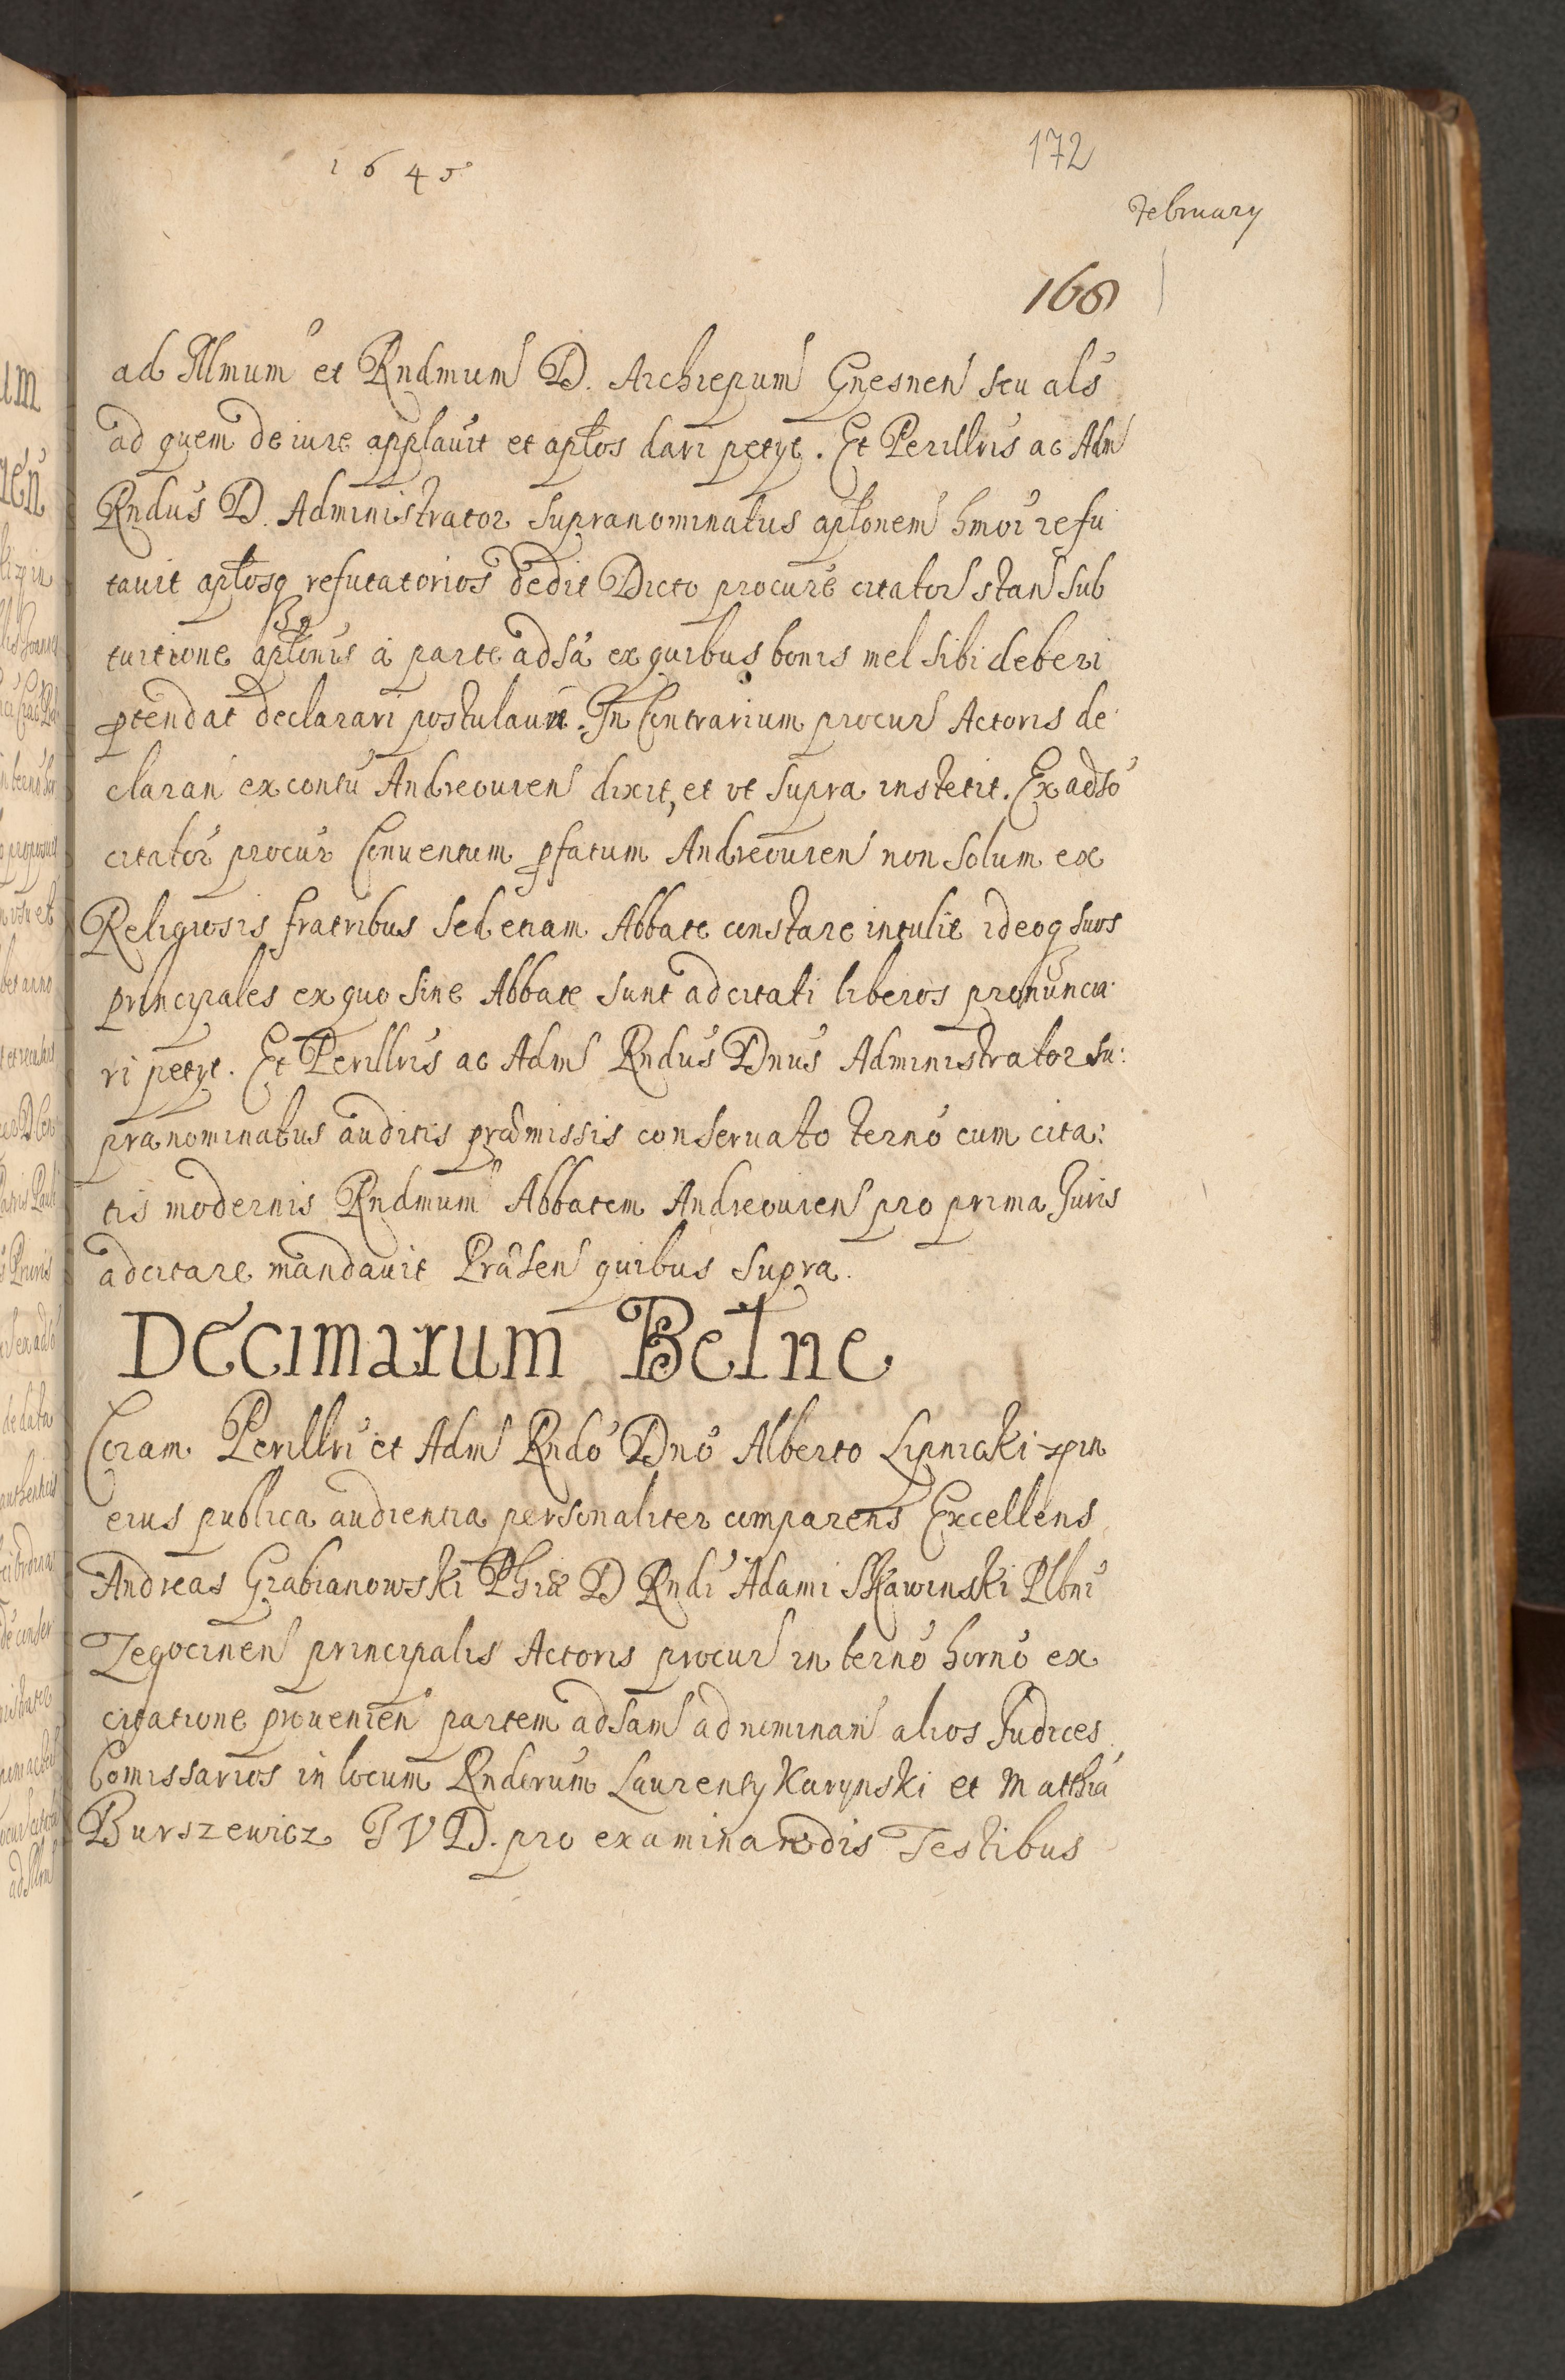 1645
172
February
166
ad Illmum et Rndmum D. Archiepum Gnesnen seu als
ad quem de iure applauit et aplos dari petyt. Et Perillris ac Adm
Rndus D. Administrator supranominatus aplonem hmoi refu
tauit aplosq refutatorios dedit Dicto procure citator stan sub
tuitione aplonis a parte adsa ex quibus bonis mel sibi deberi
ptendat declarari postulauit. In Contrarium procur Actoris de
claran ex contu Andreouien dixit, et ut supra institit. Ex adso
citator procur Conuentum pfatum Andreouien non solum ex
Religiosis fratribus sed etiam Abbate constare intulit ideoq suos
principales ex quo sine Abbate sunt adcitati liberos pronuncia
ri petyt. Et Perillris ac Adm Rndus Dnus Administrator su:
pranominatus auditis præmissis conseruato terno cum cita:
tis modernis Rndmum Abbatem Andreouien pro prima Juris
adcitare mandauit Præsen quibus supra.
Decimarum Betne
Coram Perillri et Adm Rndo Dno Alberto Lipnicki in
eius publica audientia personaliter comparens Excellens
Andreas Grabianowski Phiæ D Rndi Adami Skawinski Plbni
Zegocinen principalis Actoris procur in terno horno ex
citatione prouenien partem adsam ad nominan alios Judices
Comissarios in locum Rndorum Laurenty Karynski et Matthia
Burszewicz J V D. pro examinandis Testibus